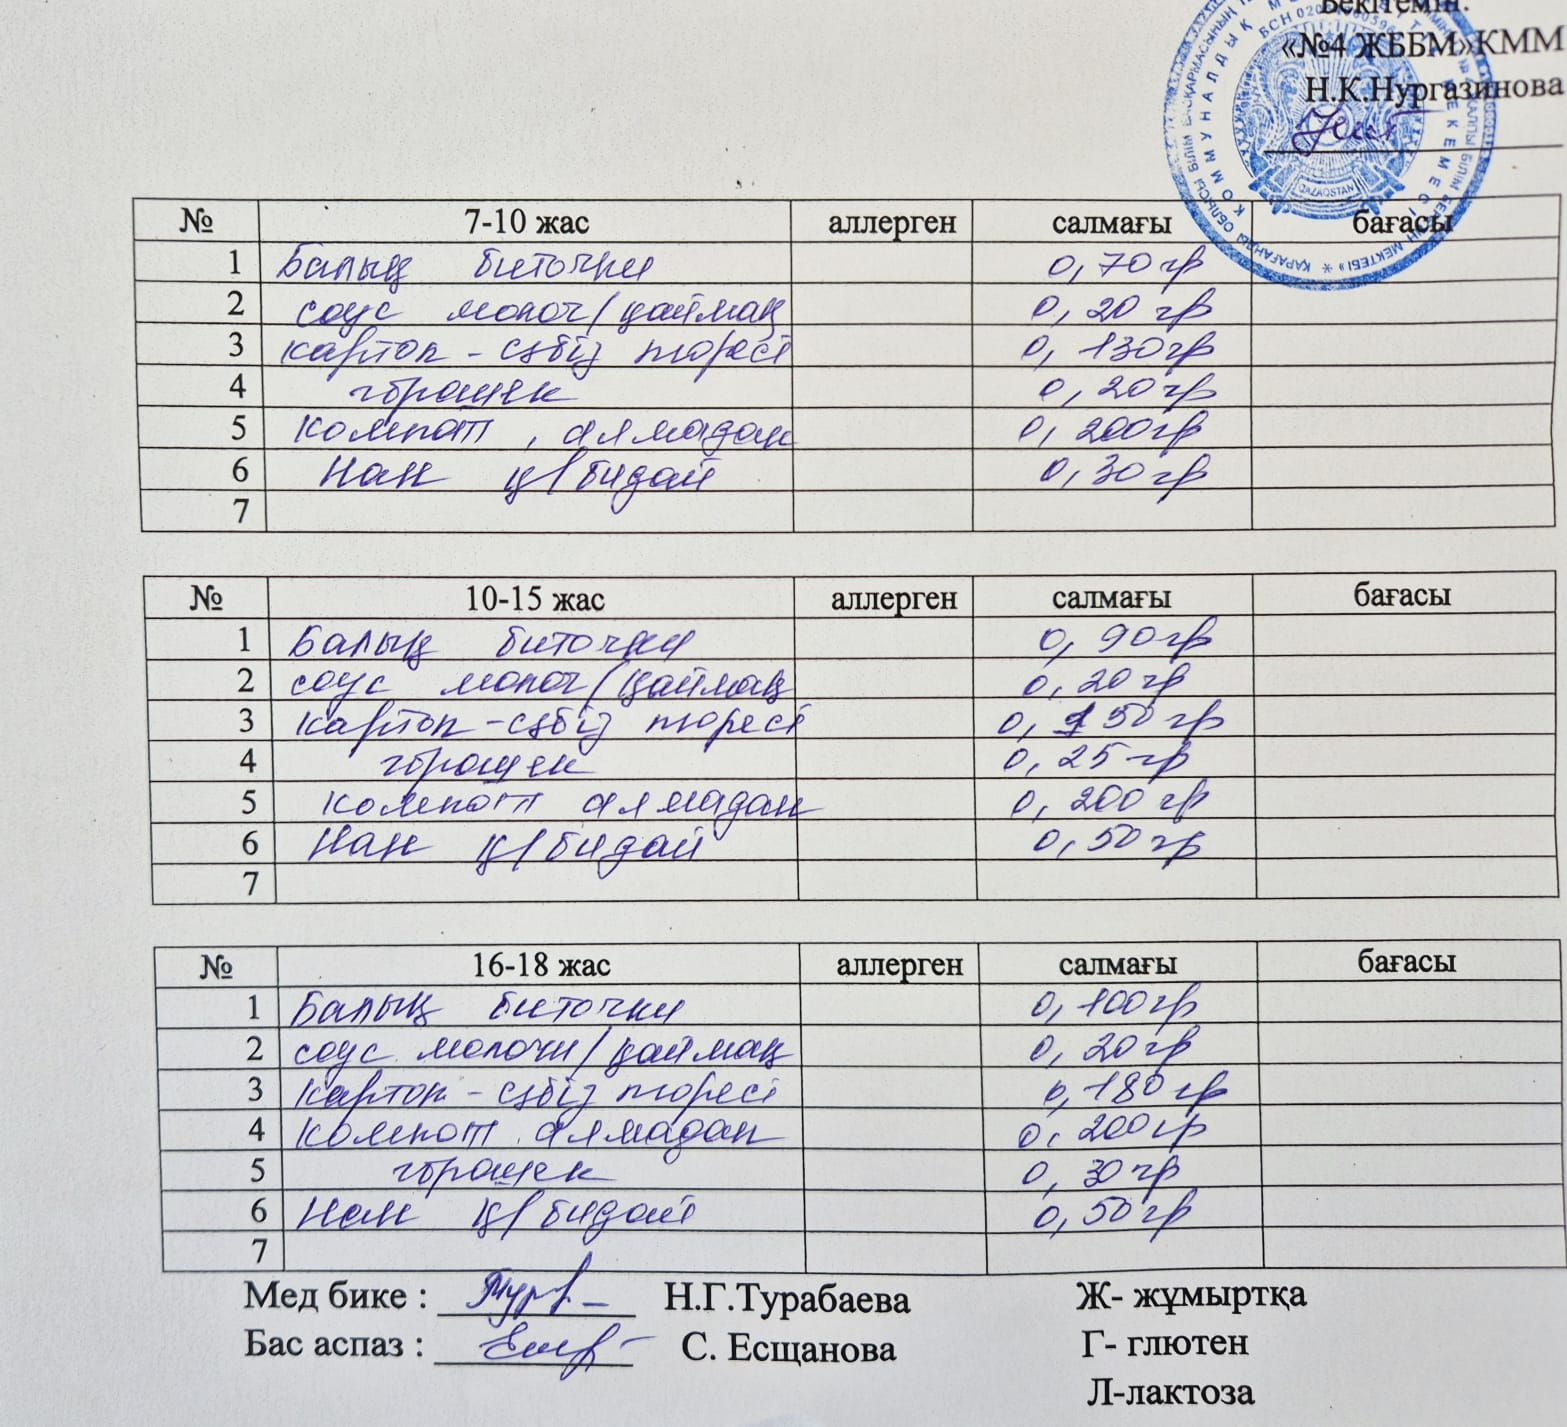 Бекітемін:
«№4 ЖББМ»КММ
Н.К.Нургазинова
QAZAQSTAN
№ 7-10 жас аллерген салмағы бағасы
1 Балық биточки 0,70гр
2 соус молоч/қаймақ 0,20 гр
3 картоп-сәбіз пюресі 0,130гр
4 горошек 0,20гр
5 компот, алмадан 0,200гр
6 Нан қ/бидай 0,30гр
7
№ 10-15 жас аллерген салмағы бағасы
1 Балық биточки 0,90гр
2 соус молоч/қаймақ 0,20гр
3 картоп-сәбіз пюресі 0,150гр
4 горошек 0,25гр
5 компот алмадан 0,200гр
6 Нан қ/бидай 0,50гр
7
№ 16-18 жас аллерген салмағы бағасы
1 Балық биточки 0,100гр
2 соус молочн/қаймақ 0,20гр
3 картоп-сәбіз пюресі 0,180гр
4 компот алмадан 0,200гр
5 горошек 0,30гр
6 Нан қ/бидай 0,50гр
7
Мед бике : Н.Г.Турабаева Ж- жұмыртқа
Бас аспаз : С. Есщанова Г- глютен
Л-лактоза